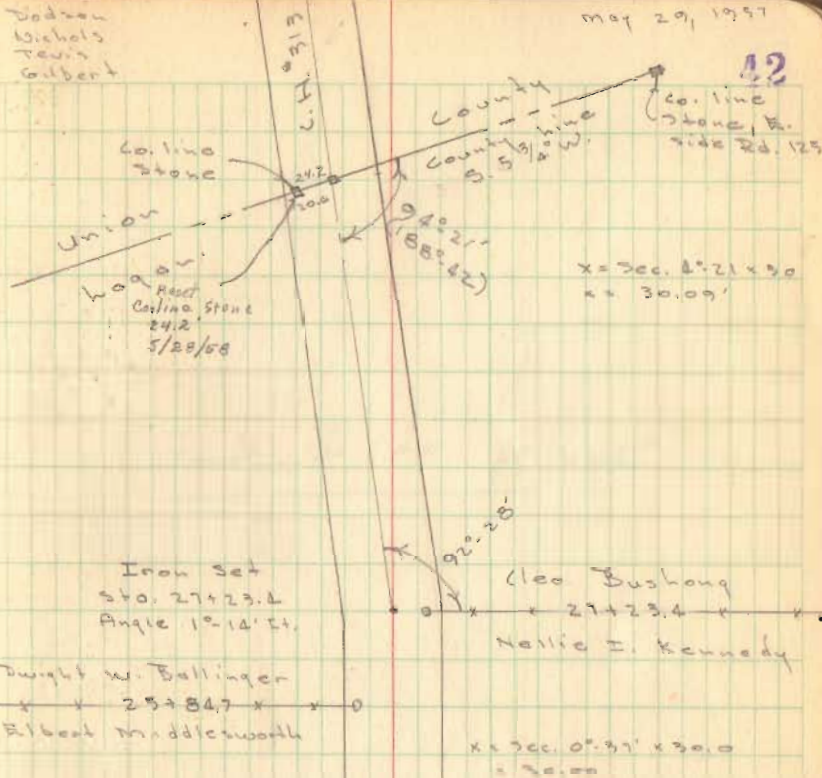 Dodson
Nichols
Tevis
Gilbert
May 29, 1957
42
C.H. #313
Co. line
Stone, E.
side Rd. 125
County
County Line
S. 5 3/4° W.
Co. line
Stone
24.2
30.0
Union
Logan
94°-21'
(188°-42)
x = Sec. 4°-21 x 30
x = 30.09'
Reset
Co. line Stone
24.2
5/28/58
92°-28'
Iron Set
Sta. 27+23.4
Angle 1°-14' Lt.
Cleo Bushong
27+23.4
Nellie I. Kennedy
Dwight W. Bollinger
25+84.7
Elbert Middlesworth
x = Sec. 0°-37' x 30.0
= 30.00